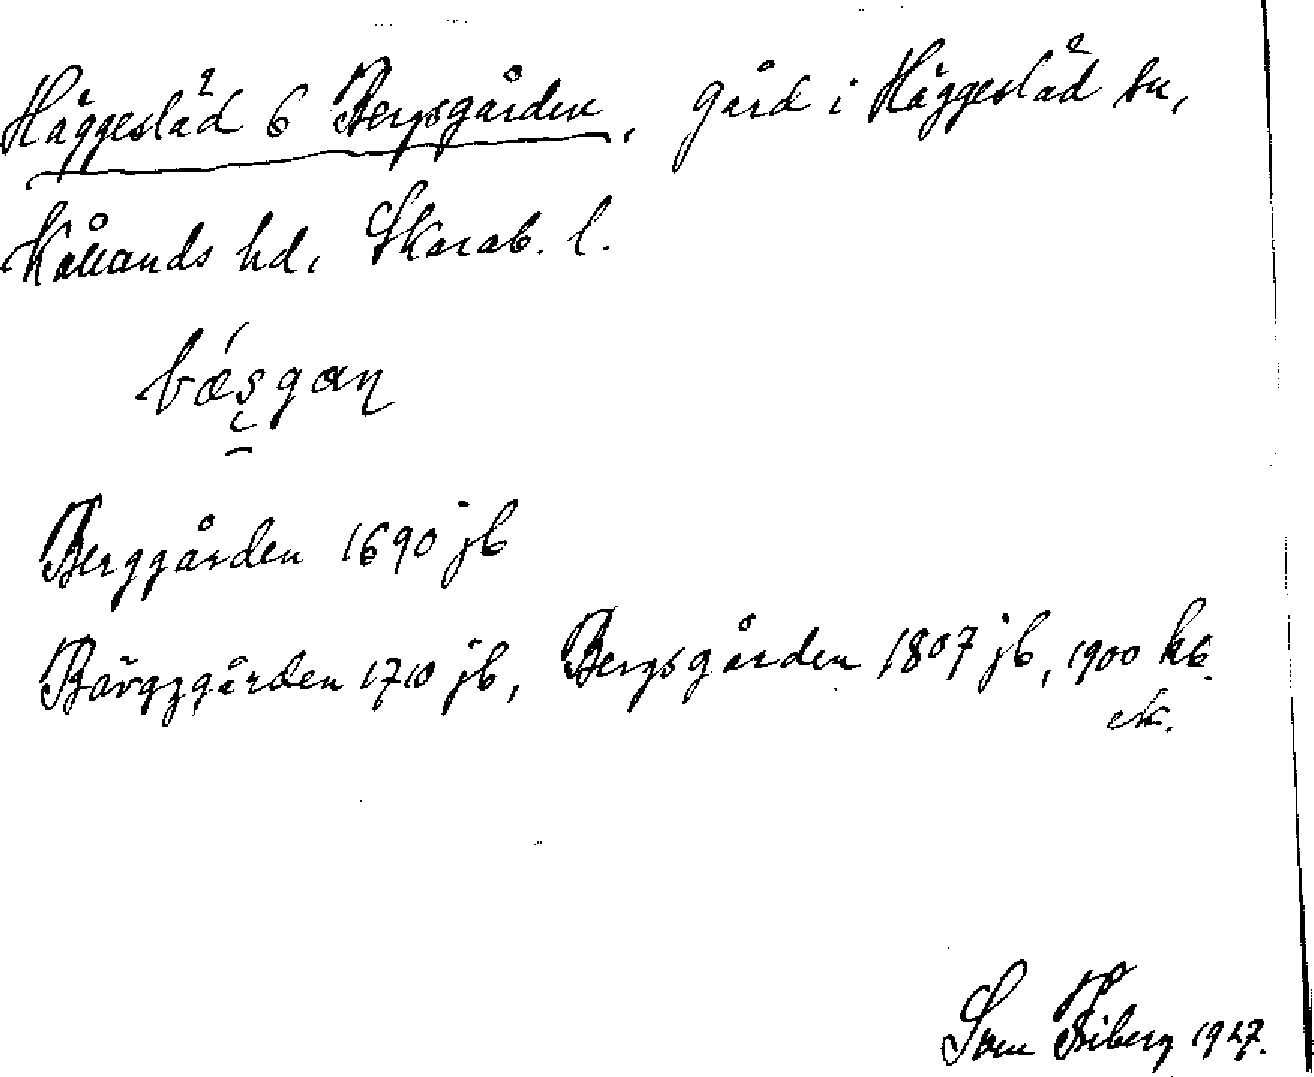 Häggesläd 6 Bergsgården, gård i Häggesläd sn,
Kållands hd, Skarab. l.
bǽşgaɳ
Berggården 1690 jb
Bärgzgården 1710 jb, Bergsgården 1807 jb, 1900 kb.
ek.
Sven Friberg 1927.